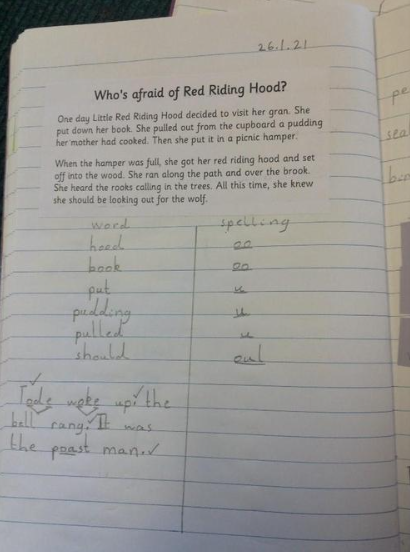 26.1.21
Who's afraid of Red Riding Hood?
One day Little Red Riding Hood decided to visit her gran. She
put down her book. She pulled out from the cupboard a pudding
her mother had cooked. Then she put it in a picnic hamper.
When the hamper was full, she got her red riding hood and set
off into the wood. She ran along the path and over the brook.
She heard the rooks calling in the trees. All this time, she knew
she should be looking out for the wolf.
word spelling
hood oo
book oo
put u
pudding u
pulled u
should oul
Tode woke up. the
bell rang. It was
the poast man.